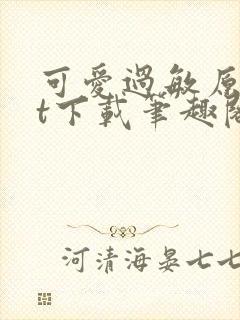 可愛過敏原
t下載筆趣閣
河清海晏七七